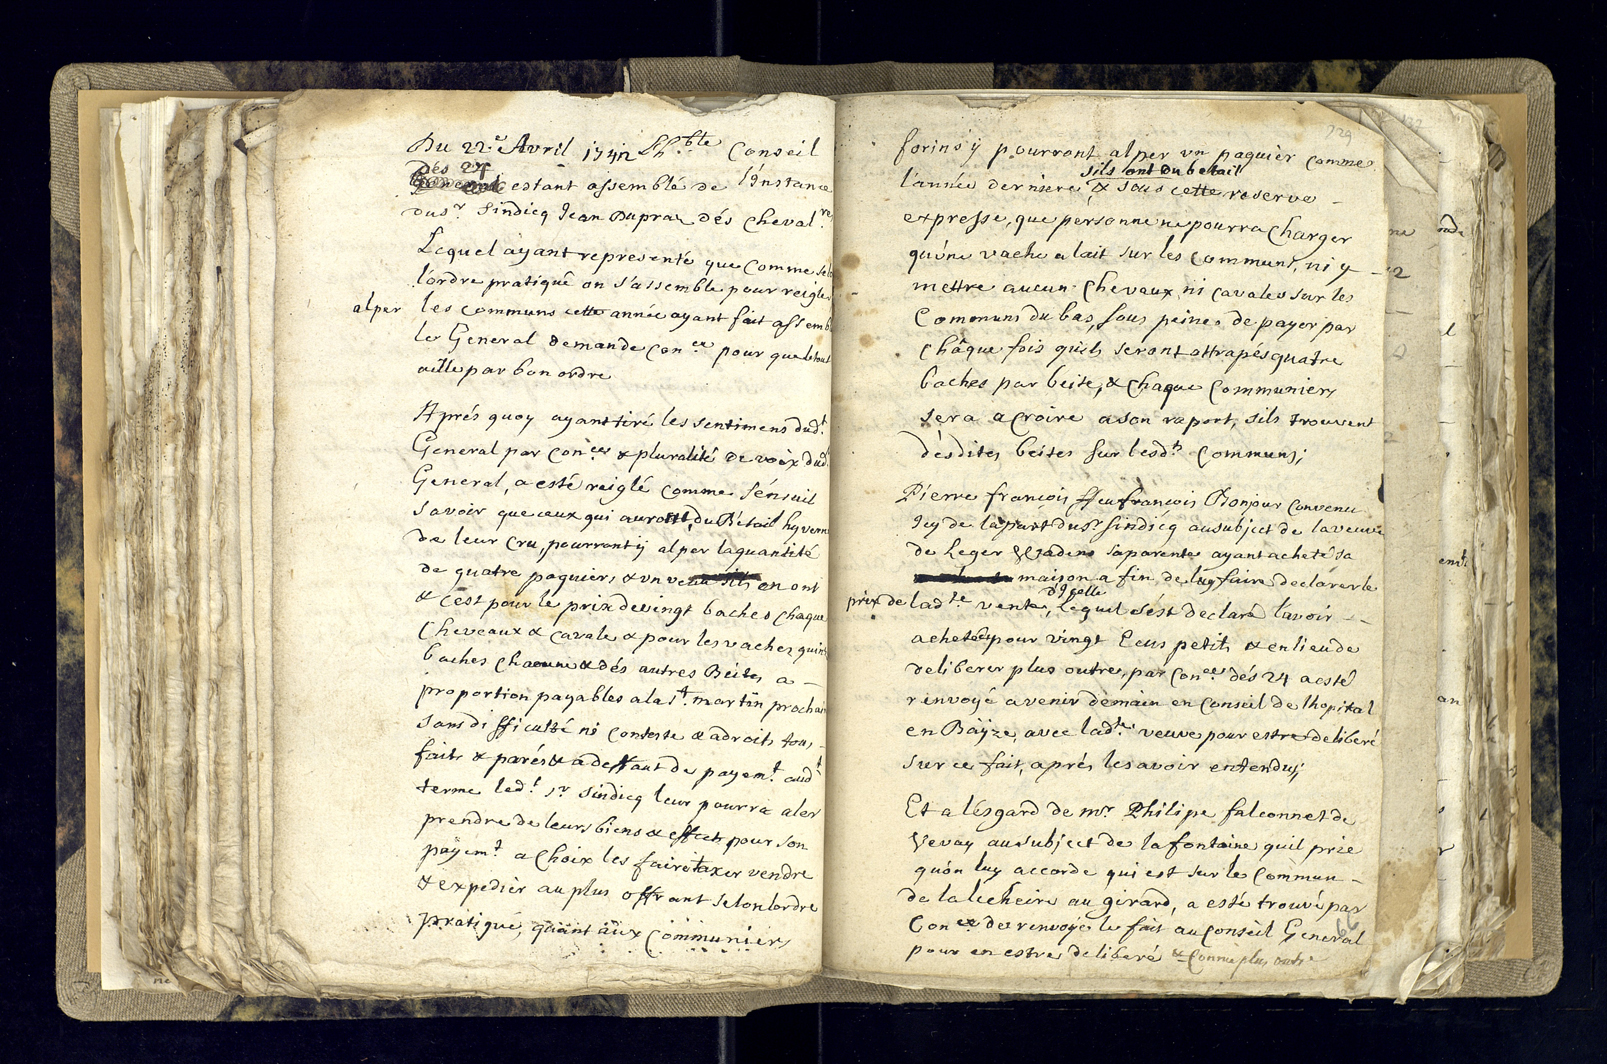 Du 22.e Avril 1742 Lh.ble Conseil
Dés 24
estant assemblé de l'Instance
dusr. Sindicq Jean Dupraz dés Cheval.res
Lequel ayant representé que comme selo
l'ordre pratiqué on s'assemble pour reigler
alper les communs cette année ayant fait assemb
le General demande con.ce pour que le tout
aille par bon ordre
Aprés quoy ayant tiré les sentimens dud.t
General par con.ces & pluralité de voix dud.
General, a esté reiglé comme s'énsuit
savoir que ceux qui auront du Bétail hyverné
de leur cru, pourront ÿ alper la quantité
de quatre paquiers & vn veau sils en ont
& c'est pour le prix de vingt baches chaque
Cheveaux & Cavale & pour les vaches quinze
baches chacune & dés autres Beites a –
proportion payables a la s.t martin prochain
sans difficulté ni conteste & adroits tous
faits & parés & a deffaut de payem.t aud.t
terme led.t sr Sindicq leur pourra aler
prendre de leurs biens & effects pour son
payem.t a choix les faire taxer vendre
& expedier au plus offrant selon lordre
pratiqué, quant aux Communiers
129
forins ÿ pourront alper vn paquier comme
sils ont du betail
l'année derniere, & sous cette reserve –
expresse, que personne ne pourra Charger
qu'éne vache a lait sur les Communs, ni y –
mettre aucun Chevaux ni cavales sur les
Communs du bas, sous peines de payer par
châque fois quils seront attrapés quatre
baches par beite, & chaque Communiers
sera a croire a son raport, sils trouvent
désdites beites sur lesd.ts Communs;
Pierre françois ffeu françois Bonjour convenu
Icy de la part dusr. Sindicq au subject de la veuve
de Leger sa parente ayant acheté sa
maison a fin de luy faire declarer le
d'Icelle
prix de lad.te vente, Lequel s'ést declaré lavoir – –
acheté pour vingt Ecus petits & en lieu de
deliberer plus outre, par con.ce dés 24 a esté
renvoyé a venir demain en Conseil de lhopital
en Baÿze, avec lad.te veuve pour estre deliberé
sur ce fait, aprés les avoir entendus;
Et a lésgard de mr. Philipe falconnet de
Vevay au subject de la fontaine quil prie
quón luy accorde qui est sur le Commun –
de la lecheire au girard, a esté trouvé par
Con.ce de renvoyé le fait au Conseil General
pour en estre deliberé & Connu plus outre